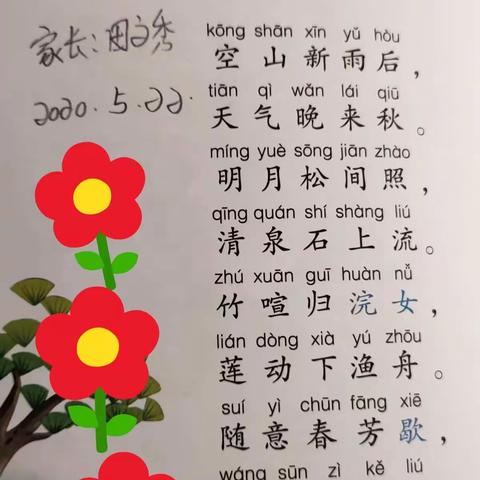 家长:田文秀
2020.5.22.
kōng shān xīn yǔ hòu
空山新雨后，
tiān qì wǎn lái qiū
天气晚来秋。
míng yuè sōng jiān zhào
明月松间照，
qīng quán shí shàng liú
清泉石上流。
zhú xuān guī huàn nǚ
竹喧归浣女，
lián dòng xià yú zhōu
莲动下渔舟。
suí yì chūn fāng xiē
随意春芳歇，
wáng sūn zì kě liú